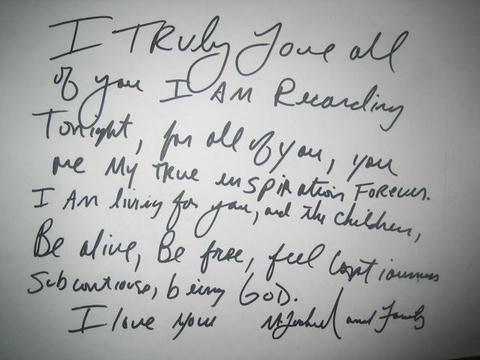 I TRuly love all
of you I AM Recording
Tonight, for all of you, you
are My true inspiration Forever.
I Am living for you, and the children,
Be alive, Be free, feel
being GOD.
I love you and Family